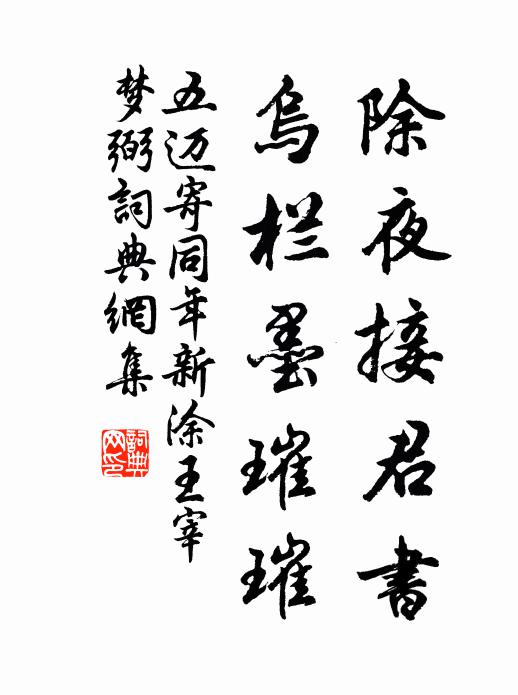 除夜接君書
烏栏墨璀璀
五迈寄同年新涂王宰
梦弼詞典網集
詞典网印